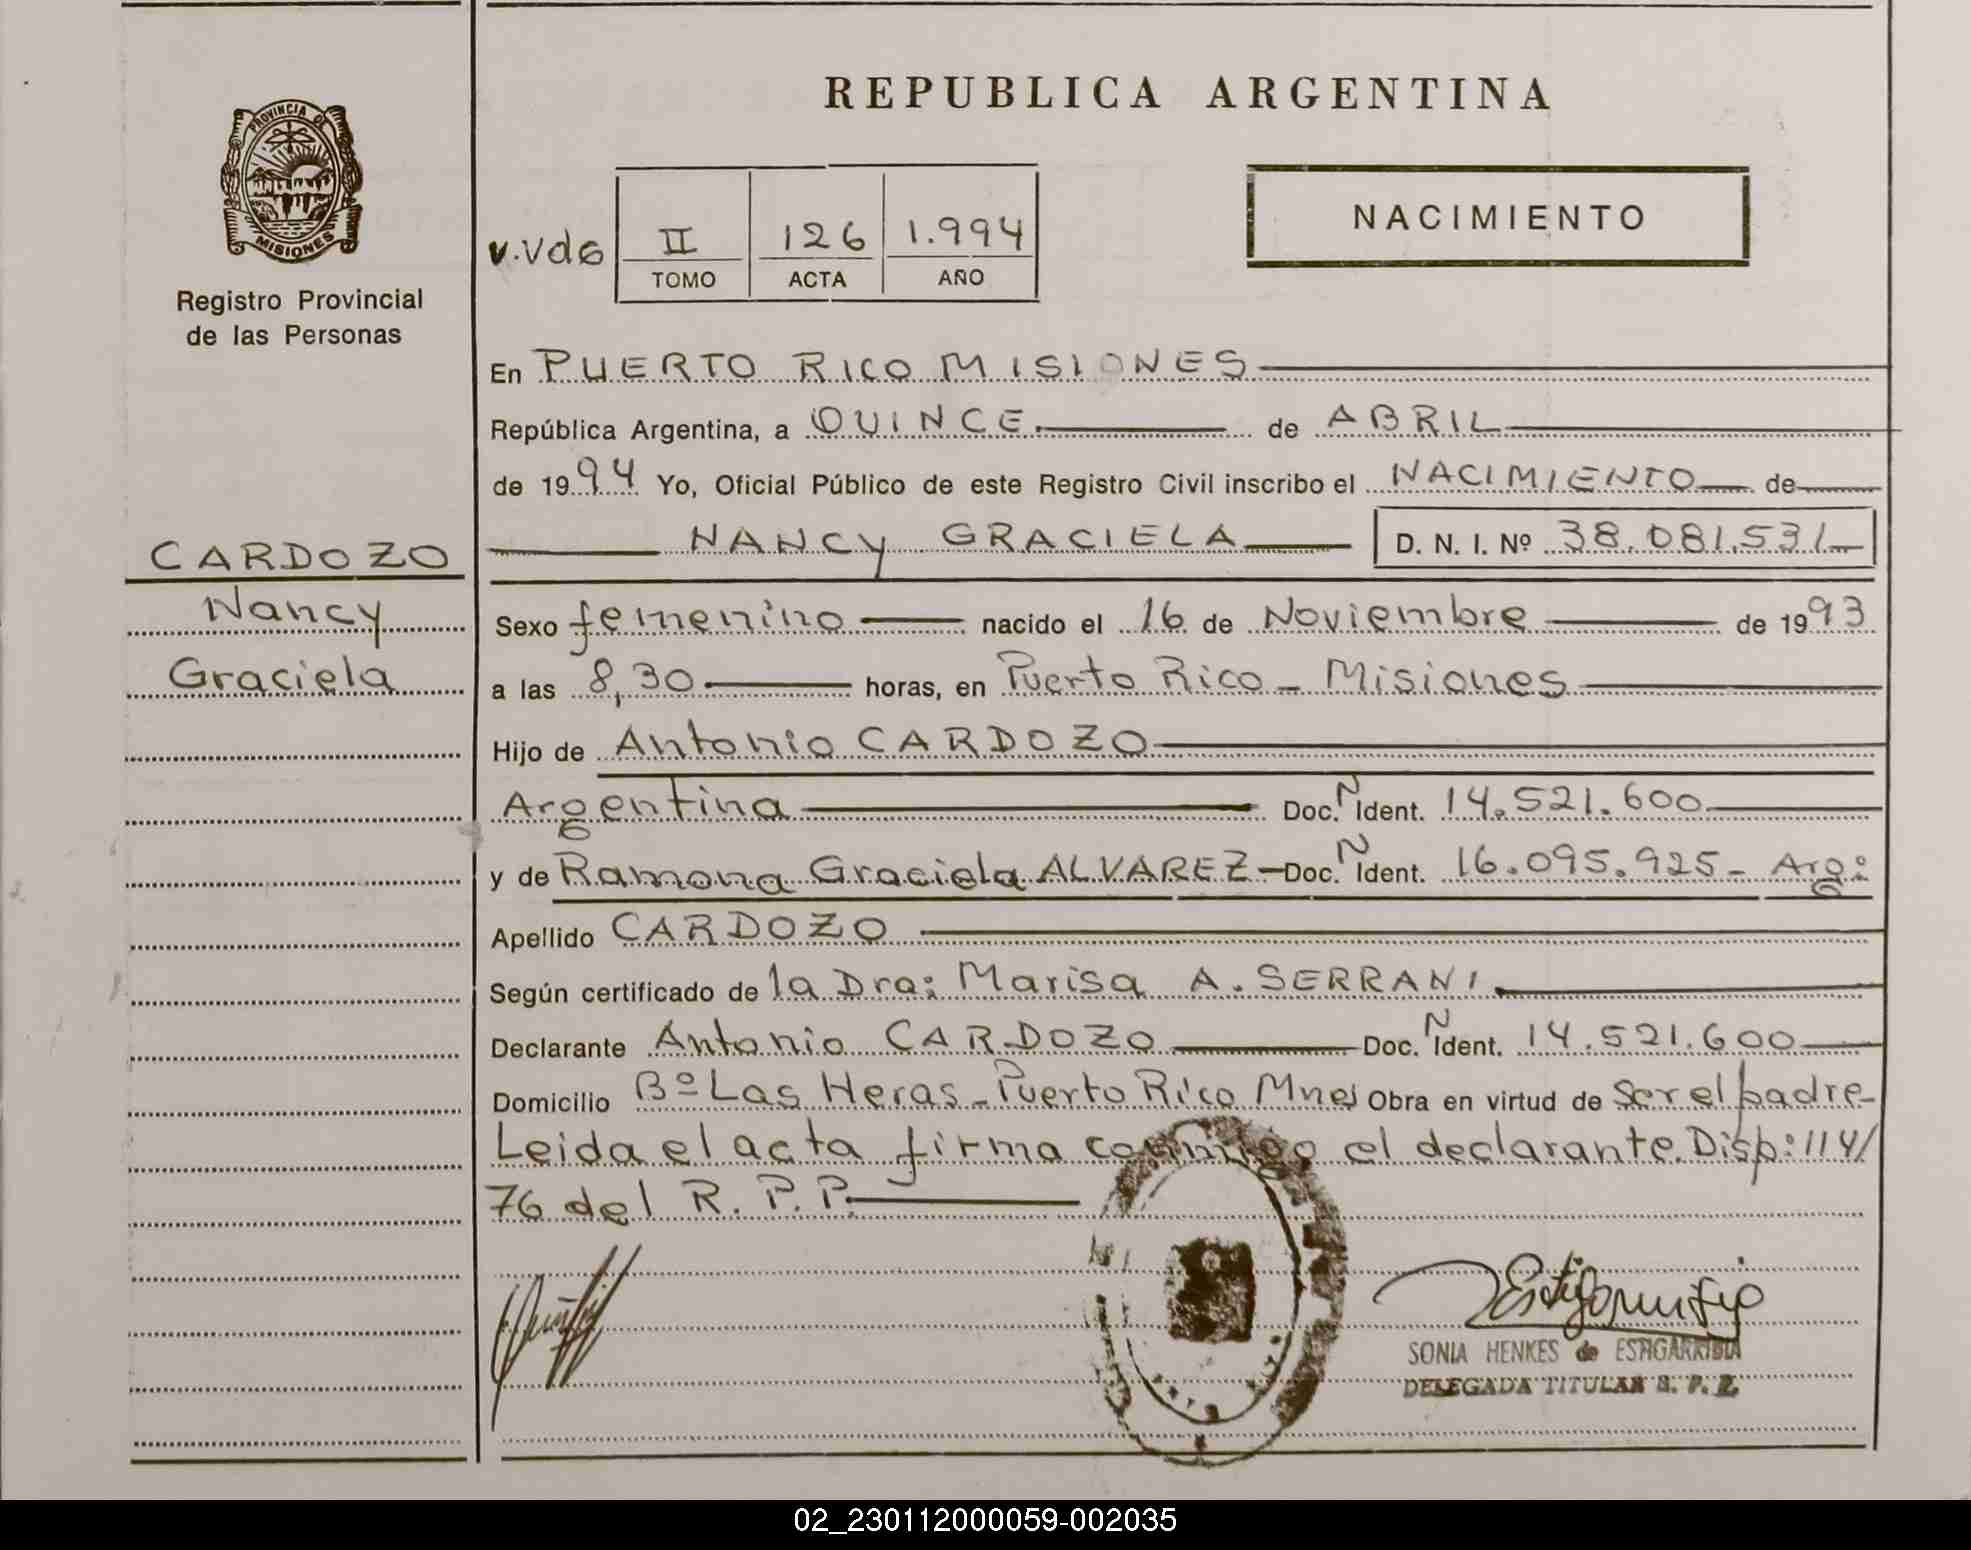 REPUBLICA ARGENTINA
PROVINCIA DE
MISIONES
Registro Provincial
de las Personas
v.vdG II 126 1.994
TOMO ACTA AÑO
NACIMIENTO
En PUERTO RICO MISIONES
República Argentina, a QUINCE. de ABRIL
de 1994 Yo, Oficial Público de este Registro Civil inscribo el NACIMIENTO de
NANCY GRACIELA D. N. I. Nº 38.081.531
CARDOZO
Nancy
Graciela
Sexo femenino nacido el 16 de Noviembre de 1993
a las 8,30 horas, en Puerto Rico - Misiones
Hijo de Antonio CARDOZO
Argentina Doc. N Ident. 14.521.600
y de Ramona Graciela ALVAREZ Doc. N Ident. 16.095.925 - Arg:
Apellido CARDOZO
Según certificado de la Dra: Marisa A. SERRANI
Declarante Antonio CARDOZO Doc. N Ident. 14.521.600
Domicilio Bº Las Heras - Puerto Rico Mnes Obra en virtud de ser el padre-
Leida el acta firma conmigo el declarante. Disp: 114/
76 del R. P. P.
SONIA HENKES de ESTIGARRIBIA
DELEGADA TITULAR R. P. P.
02_230112000059-002035